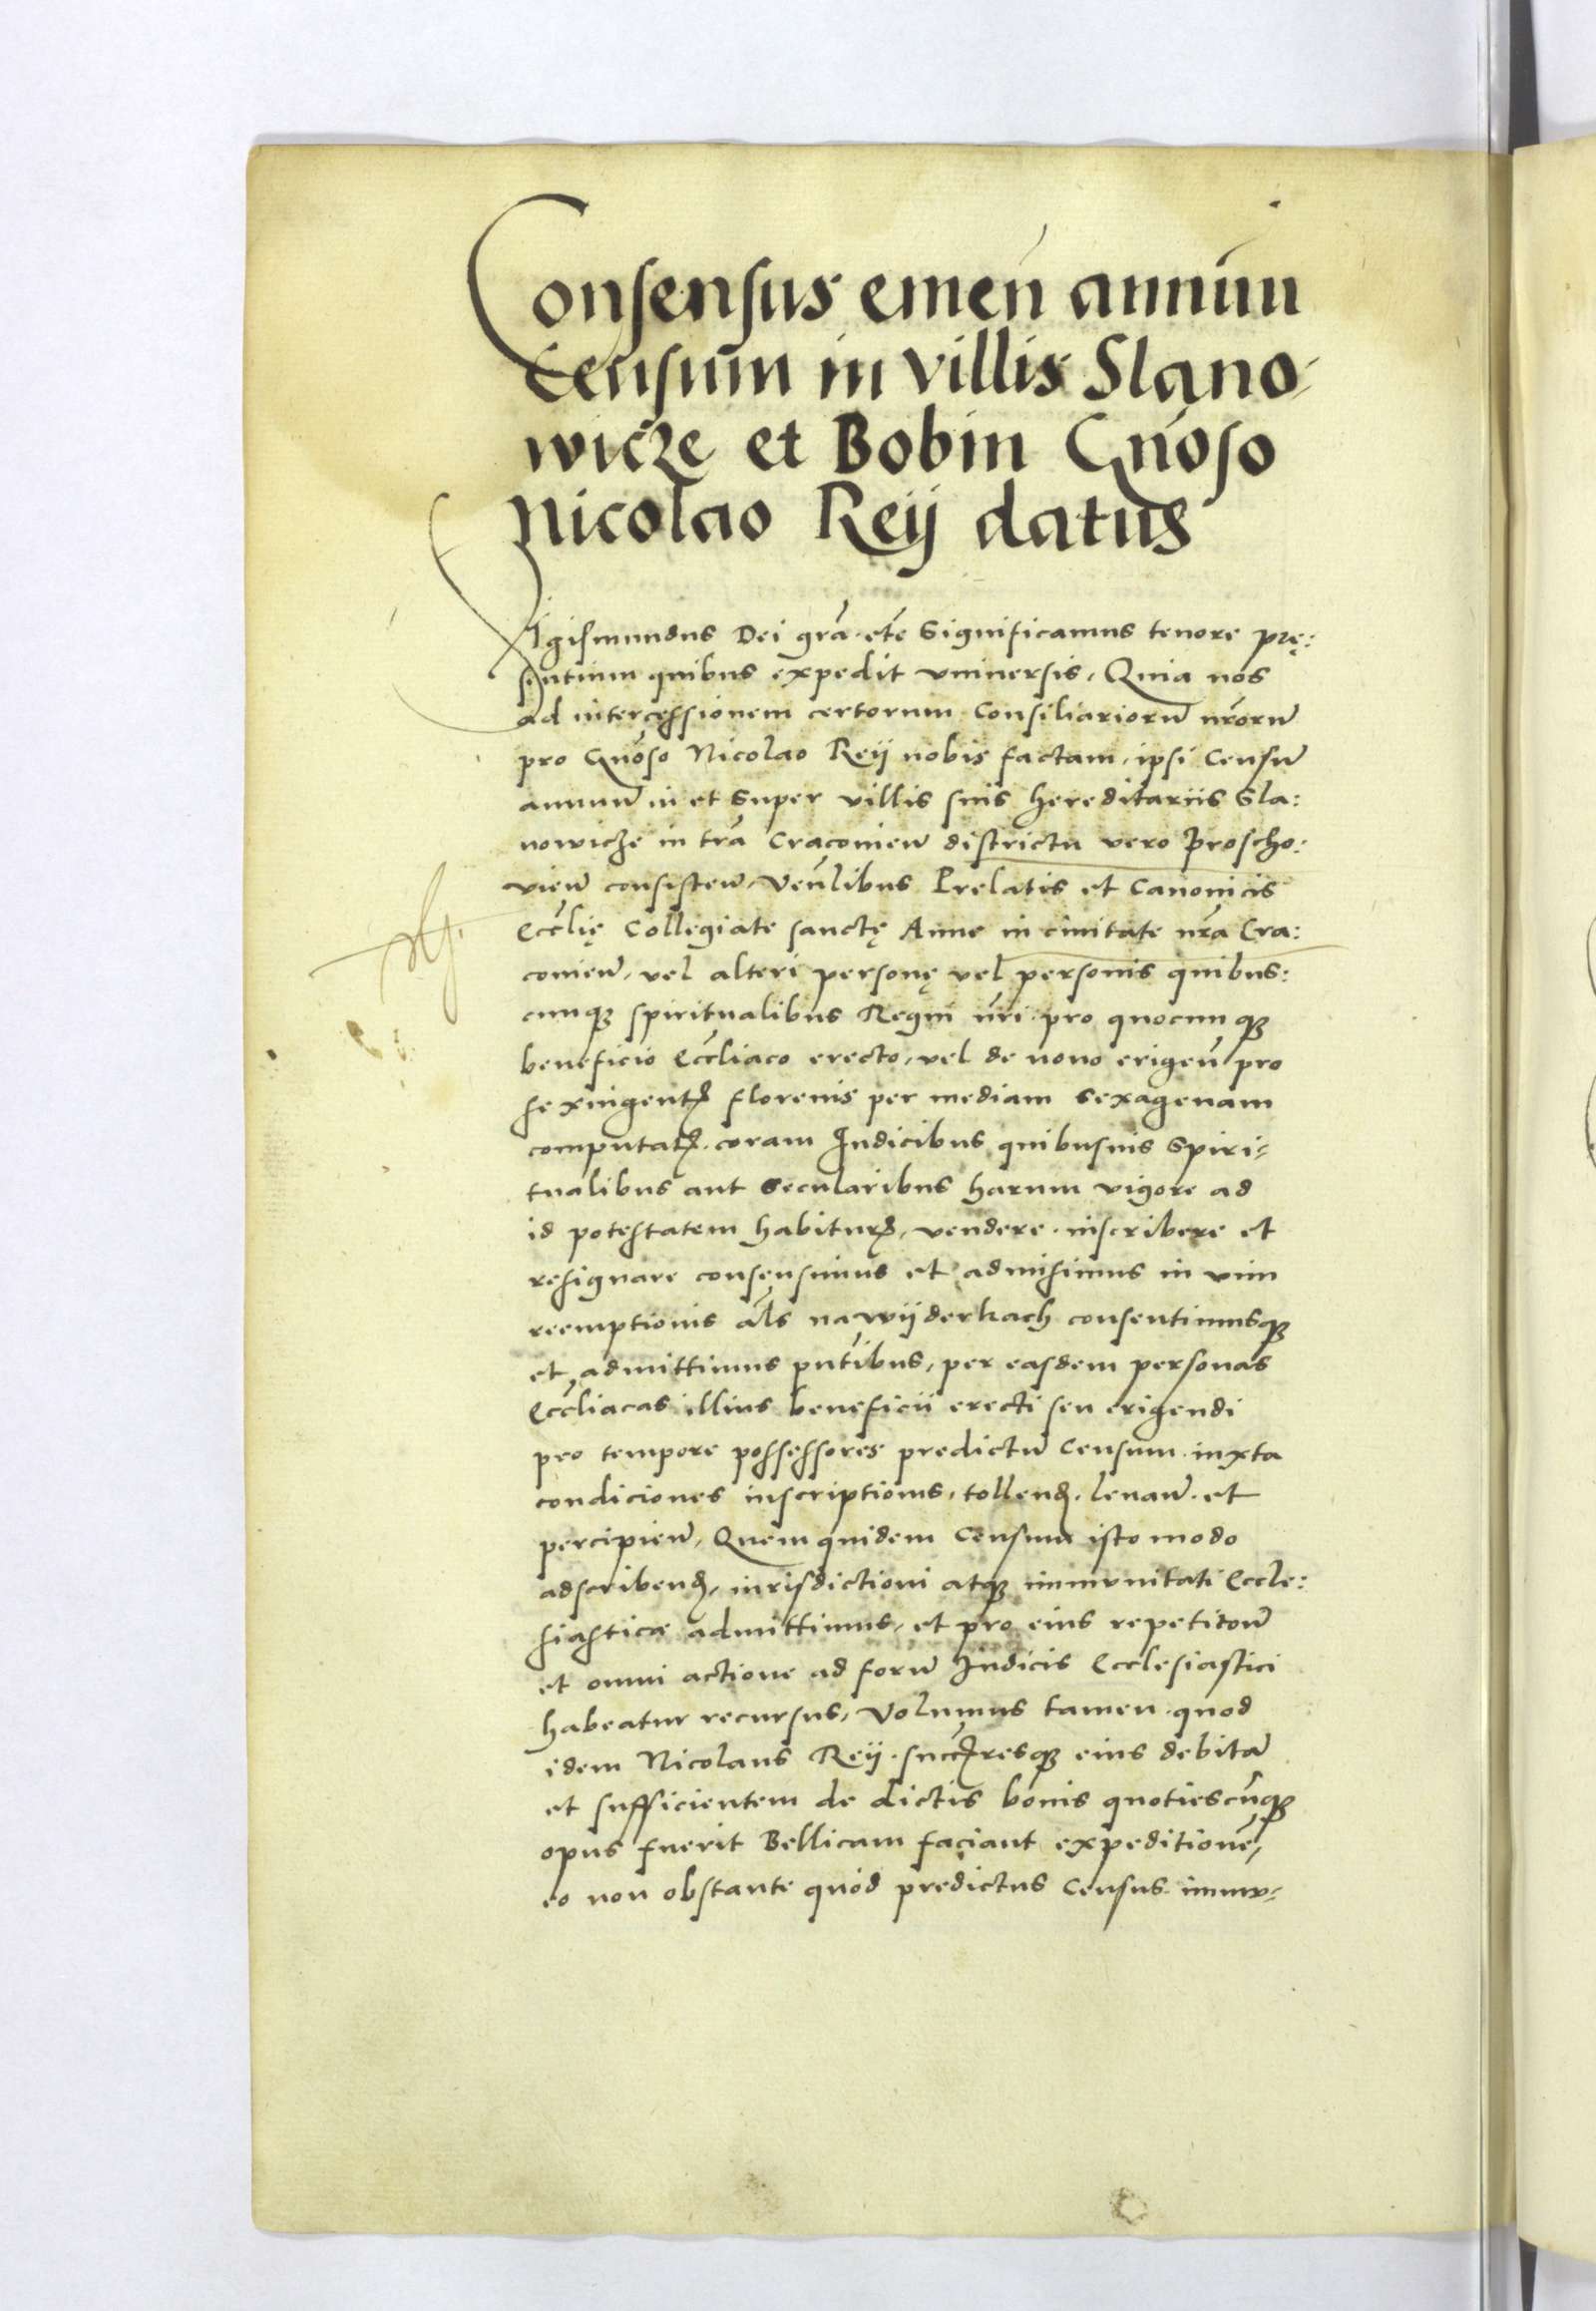 Consensus emen̄ annuū
Censum in villis Slano-
wicze et Bobin Gn̄oso
Nicolao Reÿ datus
Sigismundus Dei grā etē Significamus tenore prę:
sentium quibus expedit vniuersis, Quia nos
ad intercessionem certorum Consiliariorū nr̄orū
pro Gn̄oso Nicolao Reÿ nobis factam, ipsi Censū
annuū in et super villis suis hereditariis Sla:
nowicze in tr̄a Cracouien̄ districtu vero Proscho:
vien̄ consisten̄, Ven̄libus Prelatis et Canonicis
Eccl̄ię Collegiate sanctę Anne in ciuitate nr̄a Cra:
couien̄, vel alteri personę vel personis quibus:
cunqꝫ spiritualibus Regni nr̄i pro quocunqꝫ
beneficio Eccl̄iaco erecto, vel de nouo erigen̄ pro
sexingentꝭ florenis per mediam sexagenam
computatꝭ. coram Iudicibus quibusuis Spiri-
tualibus aut Secularibus harum vigore ad
id potestatem habiturꝭ, vendere. inscribere et
resignare consensimus et admisimus in vim
reemptionis al̄s nawÿderkach consentimusqꝫ
et admittimus pn̄tibus, per easdem personas
Eccl̄iacas illius beneficii erecti seu erigendi
pro tempore possessores predictū Censum iuxta
condiciones inscriptionis, tollenꝺ. leuan̄. et
percipien̄, Quem quidem Censum isto modo
adscribenꝺ, iurisdictioni atqꝫ immvnitati Eccle:
siasticæ admittimus, et pro eius repeticōn̄
et omni actione ad forū Iudicis Ecclesiastici
habeatur recursus, Volumus tamen quod
idem Nicolaus Reÿ succꝭresqꝫ eius debitā
et sufficientem de dictis bonis quotiescūqꝫ
opus fuerit Bellicam faciant expeditionē,
eo non obstante quod predictus Census immv-